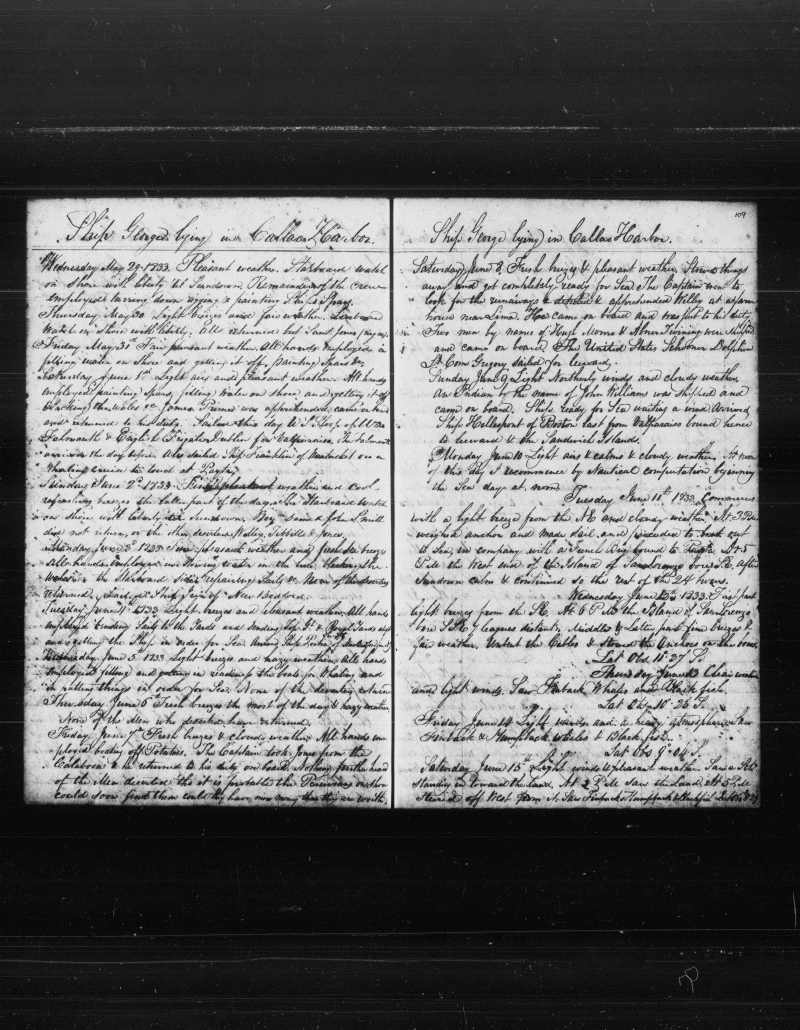 Ship George lying in Callao Harbor.
Wednesday May 29. 1833. Pleasant weather. Starboard watch
on Shore with liberty till Sundown. Remainder of the crew
employed tarring down rigging & painting Ships Spars.
Thursday May 30 Light breezes and fair weather. Larboard
Watch on Shore with liberty. All returned but
Friday May 31st Fair pleasant weather. All hands employed in
filling water on Shore and getting it off, painting Spars &c
Saturday June 1st Light airs and pleasant weather. All hands
employed painting Spars, filling water on Shore and getting it off
blacking the Wales &c James Turner was apprehended, came on board
and returned to his duty. Sailed this day U S Sloop of War
Falmouth & English Frigate Dublin for Valparaiso. The Falmouth
arrived the day before. Also sailed Ship Franklin of Nantucket on a
Whaling cruise to touch at Payta.
Sunday June 2d 1833. weather and cool
refreshing breezes the latter part of the day. The Starboard Watch
on Shore with liberty till Sundown. Boy David & John Smith
did not return, or the other deserters Willey, Tibbetts & Jones.
Monday June 3d 1833 Fine pleasant weather and fresh Sea breeze
All hands employed in Stowing water in the hole, blacking the
Wales on the Starboard side, repairing Sails &c None of the deserters
returned. Sailed Ship of New Bedford.
Tuesday June 4th 1833 Light breezes and pleasant weather. All hands
employed bending Sails to the Yards and sending Top Gt & Royal Yards aloft
and getting the Ship in order for Sea. Arrived Ship
Wednesday June 5th 1833 Light breezes and hazy weather. All hands
employed fitting and getting in readiness the boats for Whaling and
in putting things in order for Sea. None of the deserters return
Thursday June 6th Fresh breezes the most of the day & hazy weather
None of the Men who deserted have returned.
Friday June 7th Fresh breezes & cloudy weather All hands em
ployed boating off Potatoes. The Captain took Jones from the
Calaboose & he returned to his duty on board. Nothing further heard
of the Men deserted tho it is probable the Peruvians on shore
could soon find them could they have more money than they are worth.
109
Ship George lying in Callao Harbor.
Saturday June 8 Fresh breezes & pleasant weather Stowed things
away and got completely ready for Sea The Captain went to
look for the runaways & detected & apprehended Willey at a farm
house near Lima. He came on board and was put to his duty.
Two men by name of Hugh Morris & Abner Twining were shipped
and came on board. The United States Schooner Dolphin
Lt Com Gregory sailed for leeward.
Sunday June 9 Light Northerly winds and cloudy weather
An Indian by the name of John Williams was shipped and
came on board. Ship ready for Sea waiting a wind Arrived
Ship Hellespont of Boston last from Valparaiso bound hence
to leeward & the Sandwich Islands.
Monday June 10 Light airs & calms & cloudy weather. At noon
of this day I recommence by Nautical computation beginning
the Sea day at noon.
Tuesday June 11th 1833. Commences
with a light breeze from the NE and cloudy weather. At 3 PM
weighed anchor and made sail and proceeded to beat out
to Sea, in company with a French Brig bound to Payta. At 5
P M the West end of the Island of San Lorenzo bore SE. After
Sundown calm & continued so the rest of the 24 hours.
Wednesday June 12th 1833. First part
light breezes from the SE. At 6 P M the Island of San Lorenzo
bore SSE 7 leagues distant. Middle & Latter part fine breezes &
fair weather. Unbent the Cables & stowed the Anchors on the bows.
Lat Obs 11° 37 S.
Thursday June 13 Clear weather
and light winds. Saw Finback Whales and Black fish.
Lat Obs 10° 28 S.
Friday June 14 Light winds and a hazy atmosphere. Saw
Finback & Humpback whales & Black fish.
Lat Obs 9° 04 S.
Saturday June 15th Light winds & pleasant weather. Saw a Sch
standing in toward the Land. At 2 P M saw the Land. At 5 P M
Steered off West from it. Saw Finbacks Humpbacks & Blackfish